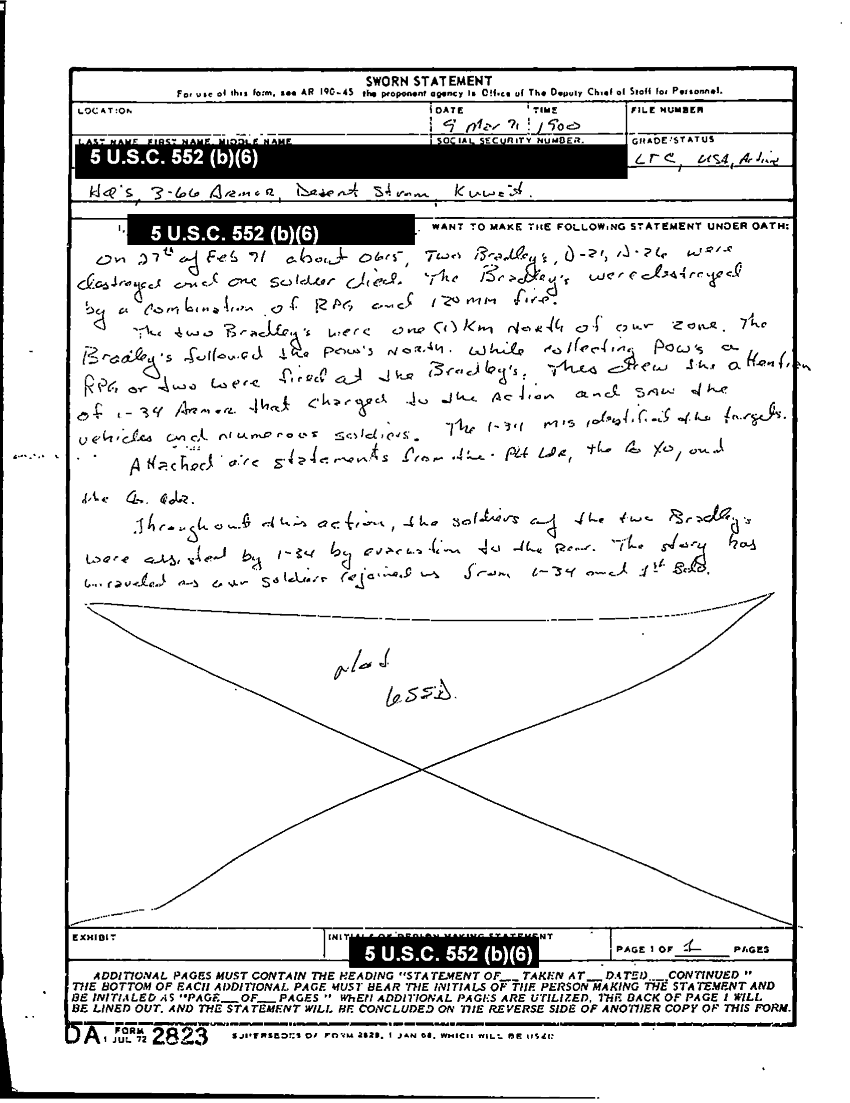 SWORN STATEMENT
For use of this form, see AR 190-45 the proponent agency is Office of The Deputy Chief of Staff for Personnel.
LOCATION
DATE
TIME
FILE NUMBER
9 Mar 91
1500
LAST NAME, FIRST NAME, MIDDLE NAME
SOCIAL SECURITY NUMBER.
GRADE/STATUS
5 U.S.C. 552 (b)(6)
LTC, USA, Active
HQ's, 3-66 Armor, Desert Storm, Kuwait.
I,
5 U.S.C. 552 (b)(6)
WANT TO MAKE THE FOLLOWING STATEMENT UNDER OATH:
On 27th of Feb 91 about 0615, Two Bradley's, D-21, D-26 were
destroyed and one soldier died. The Bradley's were destroyed
by a combination of RPG and 120 mm fire.
The two Bradley's were one (1) Km North of our zone. The
Bradley's followed the POW's North. While collecting POW's a
RPG or two were fired at the Bradley's. This drew the attention
of 1-34 Armor that charged to the action and saw the
vehicles and numerous soldiers. The 1-34 misidentified the targets.
Attached are statements from the Plt Ldr, the Co XO, and
the Co. Cdr.
Throughout this action, the soldiers of the two Bradley's
were assisted by 1-34 by evacuation to the Rear. The story has
unraveled as our soldiers rejoined us from 1-34 and 1st Bde.
EXHIBIT
5 U.S.C. 552 (b)(6)
PAGE 1 OF 1 PAGES
ADDITIONAL PAGES MUST CONTAIN THE HEADING "STATEMENT OF__ TAKEN AT__ DATED__ CONTINUED"
THE BOTTOM OF EACH ADDITIONAL PAGE MUST BEAR THE INITIALS OF THE PERSON MAKING THE STATEMENT AND
BE INITIALED AS "PAGE__ OF__ PAGES" WHEN ADDITIONAL PAGES ARE UTILIZED, THE BACK OF PAGE 1 WILL
BE LINED OUT, AND THE STATEMENT WILL BE CONCLUDED ON THE REVERSE SIDE OF ANOTHER COPY OF THIS FORM.
DA FORM 1 JUL 72 2823
SUPERSEDES DA FORM 2823, 1 JAN 68, WHICH WILL BE USED